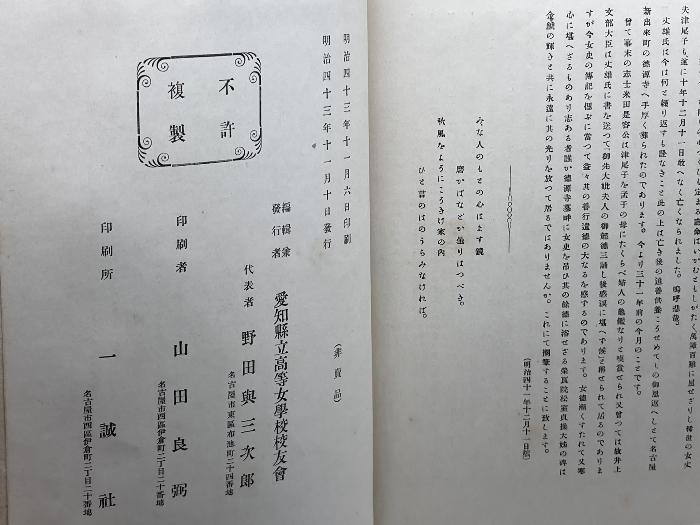 夫津尾子も遂に十年十二月十一日敢へなく亡くなられました。嗚呼悲哉。
丈雄氏は今は何と繰り返すも詮なきこと此の上は亡き後の追善供養こそせめてもの御恩返へしとて名古屋
新出來町の德源寺へ手厚く葬られたのであります。今より三十一年前の今月のことです。
曾て幕末の志士米田是容公は津尾子を孟子の母にたくらべ婦人の龜鑑なりと嘆賞せられ又曾つては故井上
文部大臣は丈雄氏に書を送つて「御先大妣夫人の御銘德三誦し後感淚に堪へず候」と稱せられて居るのでありま
すが今女史の傳記を偲ぶに當つて益々其の善行遺德の大なるを感ずるのであります。女德漸くすたれて又寒
心に堪へざるものあり志ある者誰か德源寺墓畔に女史を吊ひ其の餘德に浴せざる
金鐵の輝きと共に永遠に其の光りを放つて居るではありませんか。これにて擱筆することに致します。
(明治四十一年十二月十一日稿)
そな人のもとの心はます鏡
磨かばなどか曇りはつべき。
秋風をようにこうきけ家の内
ひと葉のはのうらみなければ。
明治四十三年十一月六日印刷
明治四十三年十一月十日發行
(非賣品)
不許
複製
編輯兼
發行者
愛知縣立高等女學校校友會
代表者 野田與三次郎
名古屋市東區布池町二十四番地
印刷者 山田良弼
名古屋市西區伊倉町二丁目二十番地
印刷所 一誠社
名古屋市西區伊倉町二丁目二十番地